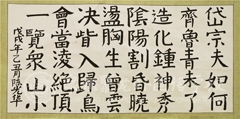 岱宗夫如何
齊魯青未了
造化鍾神秀
陰陽割昏曉
盪胸生曾雲
决眥入歸鳥
會當淩絕頂
一覽衆山小
戊戌年乙丑月